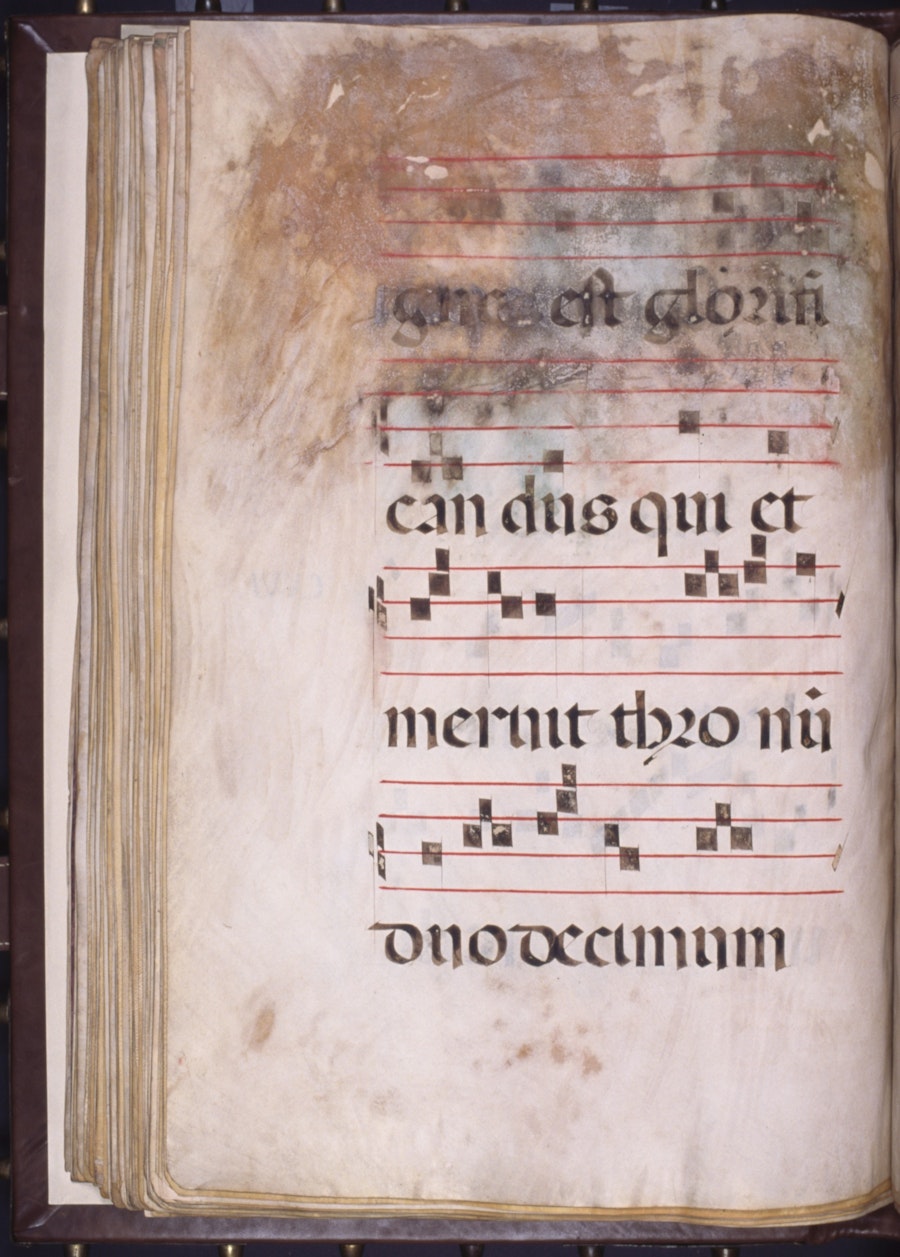 gne est glorifi
can dus qui et
meruit thro nũ
duodecimum